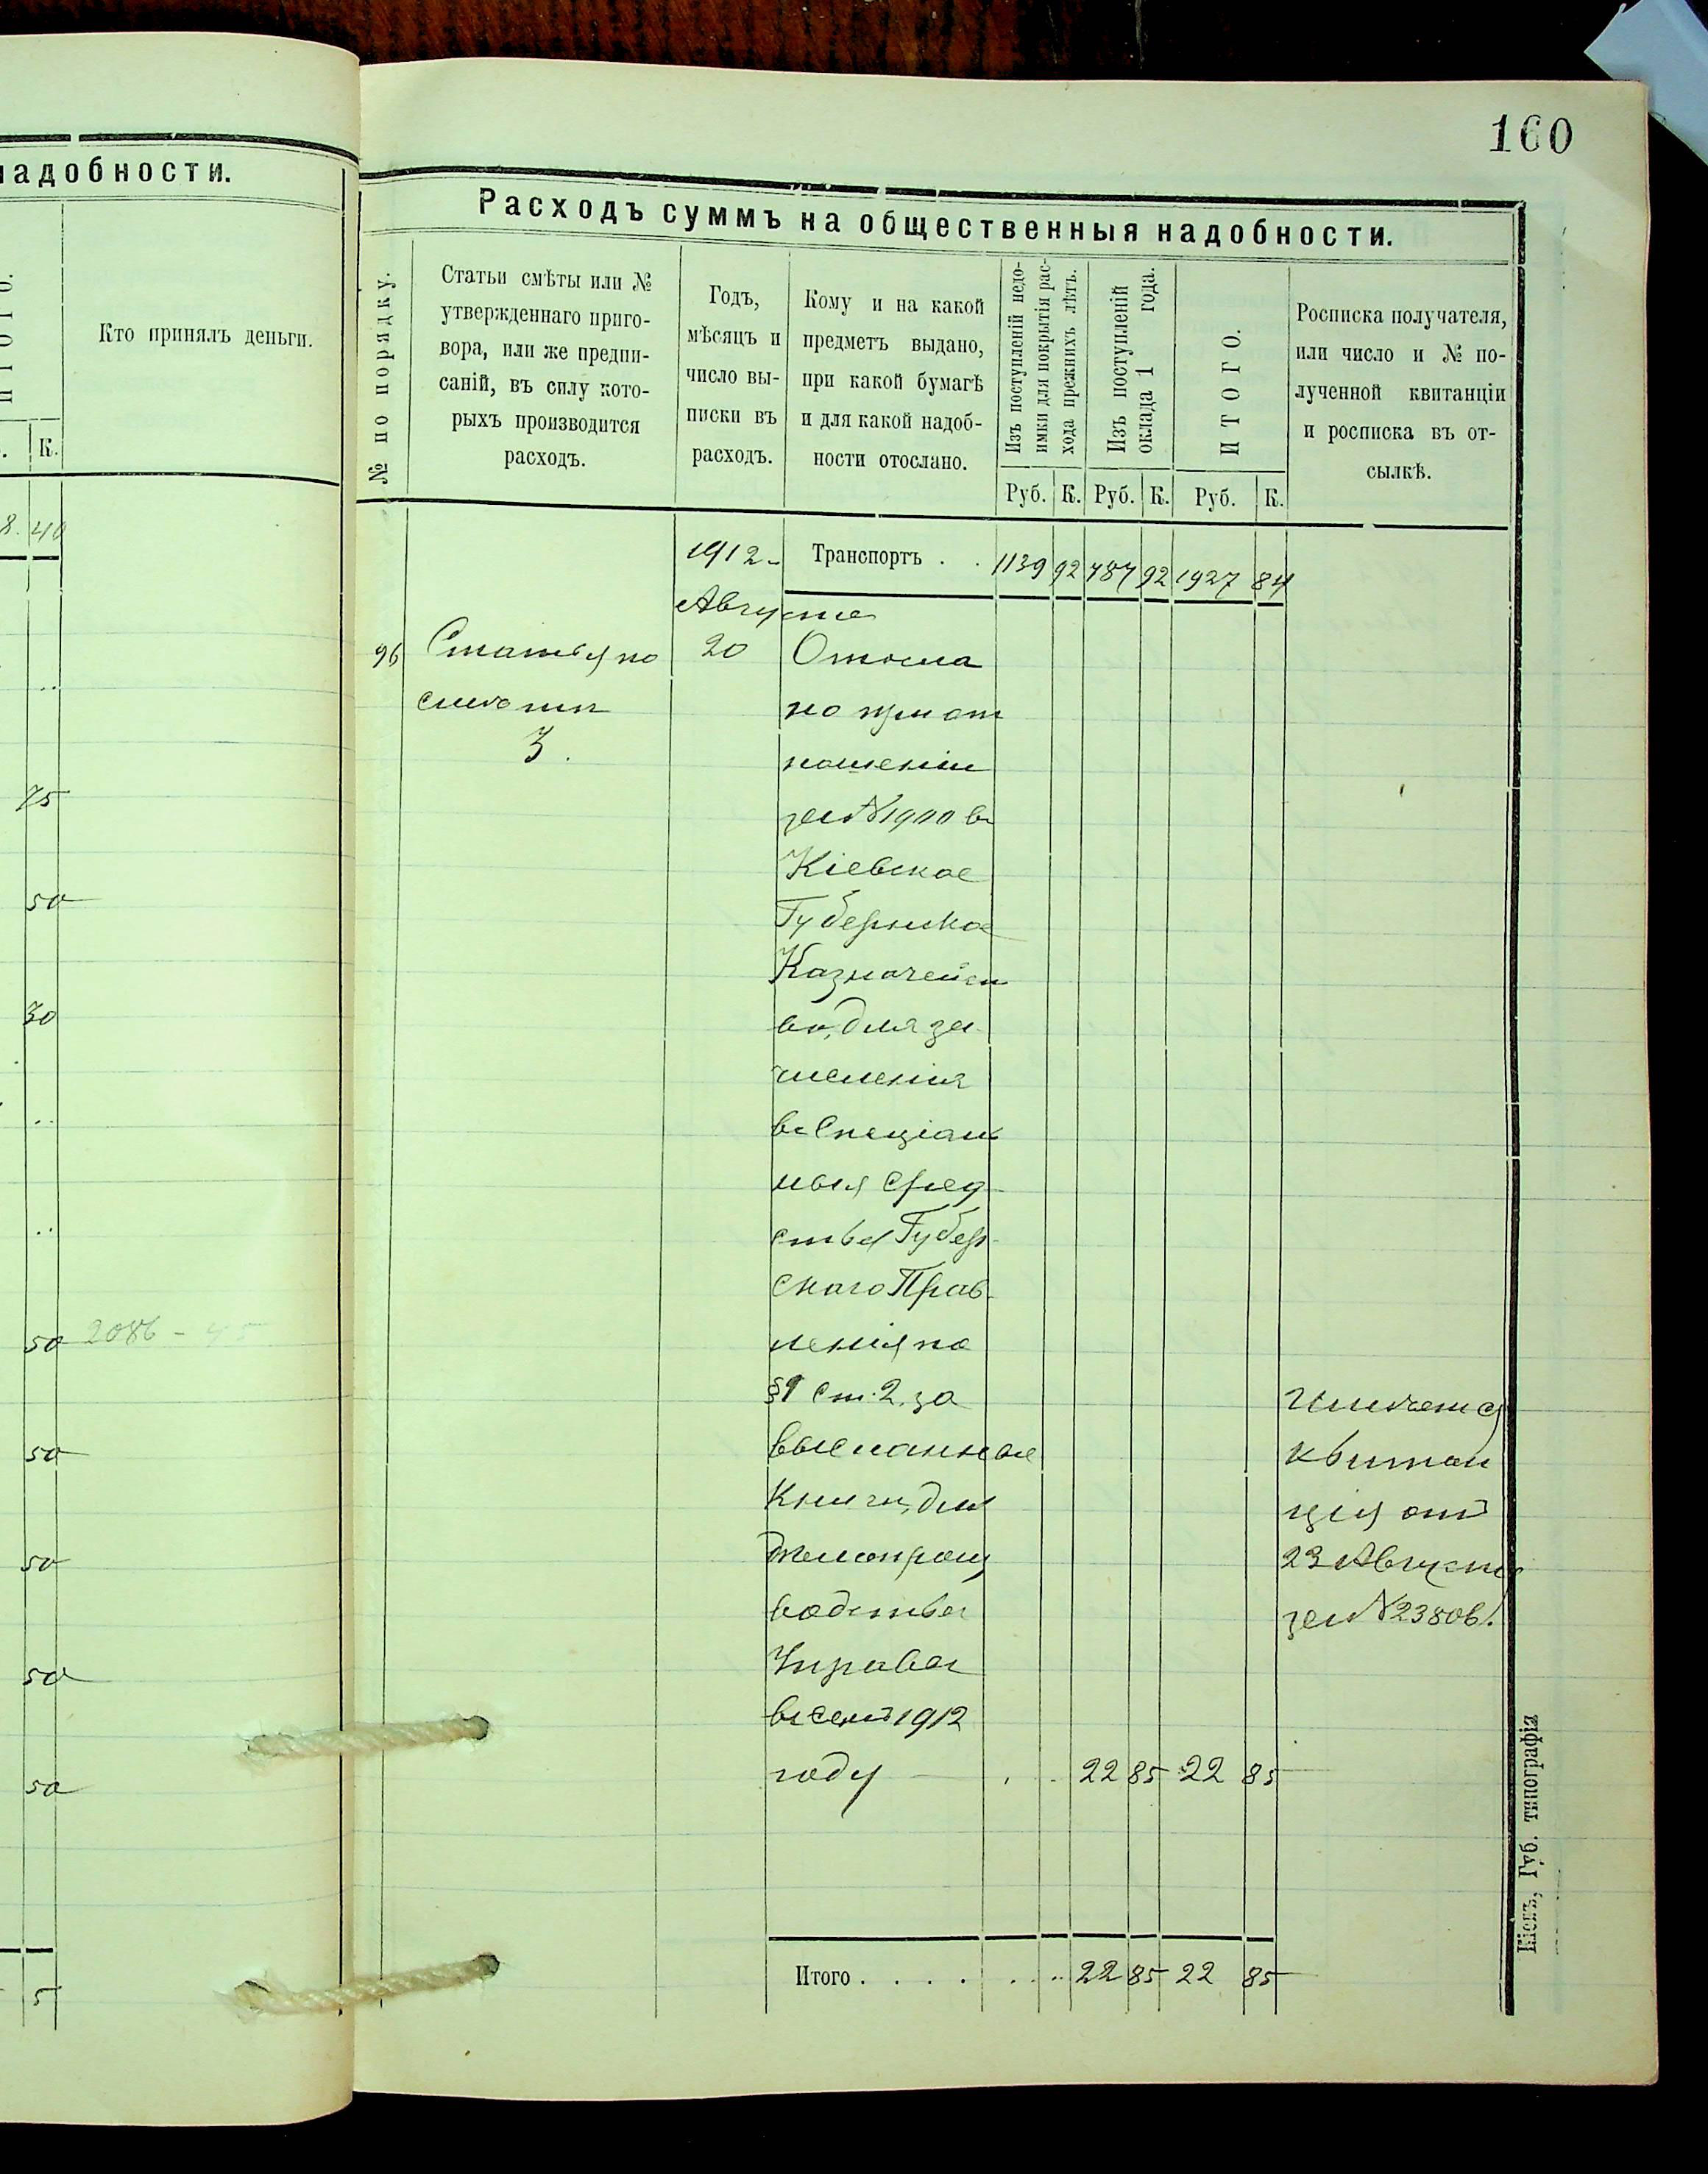 надобности.
ИТОГО.
Кто принялъ деньги.
К.
8. 40
75
50
30
50 2086 - 45
50
50
50
50
5
160
Расходъ суммъ на общественныя надобности.
№ по порядку.
Статьи смѣты или №
утвержденнаго приго-
вора, или же предпи-
саній, въ силу кото-
рыхъ производится
расходъ.
Годъ,
мѣсяцъ и
число вы-
писки въ
расходъ.
Кому и на какой
предметъ выдано,
при какой бумагѣ
и для какой надоб-
ности отослано.
Изъ поступленій недо-
имки для покрытія рас-
хода прежнихъ лѣтъ.
Изъ поступленій
оклада 1 года.
ИТОГО.
Росписка получателя,
или число и № по-
лученной квитанціи
и росписка въ от-
сылкѣ.
Руб. К. Руб. К. Руб. К.
1912 - Транспортъ . . 1139 92 787 92 1927 84
Августа
96 Статья по 20
смѣты
3.
но при от
ношеніи
за № 1900 въ
Кіевское
Губернско
Казначейст
во, для за
численія
въ Спеціаль
ныя сред
ства Губер
скаго Прав
ленія по
§1 ст. 2. за
высланные
Книги, для
дѣлопроиз
водства
Управы
въ семъ 1912
году 22 85 22 85
Имѣется
квитан
ція отъ
23 Августа
за № 23806.
Итого . . . . . . . 22 85 22 85
Кіевъ, Губ. типографія